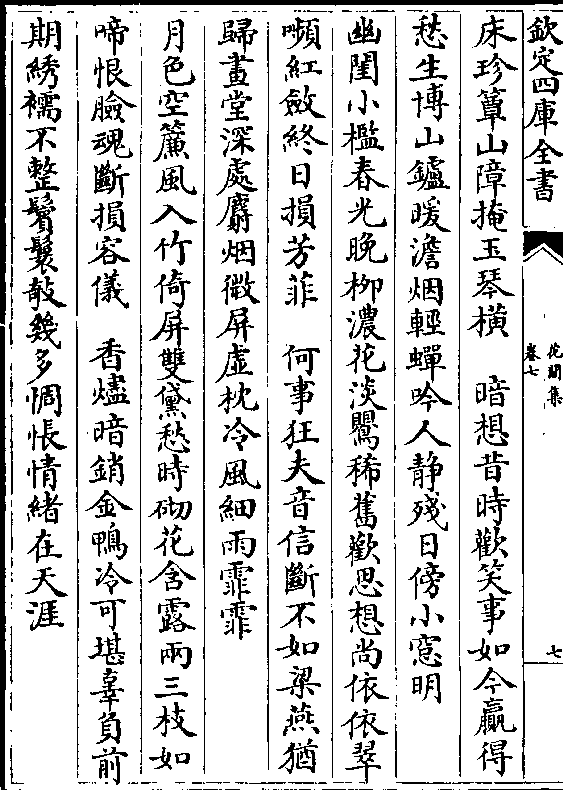 欽定四庫全書
花間集
卷七
七
床珍簟山障掩玉琴橫 暗想昔時歡笑事如今贏得
愁生博山鑪暖澹烟輕蟬吟人静殘日傍小窓明
幽閨小檻春光晚栁濃花淡鸎稀舊歡思想尚依依翠
嚬紅斂終日損芳菲 何事狂夫音信斷不如梁燕猶
歸畫堂深處麝烟微屏虛枕冷風細雨霏霏
月色空簾風入竹倚屏雙黛愁時砌花含露兩三枝如
啼恨臉魂斷損容儀 香燼暗銷金鴨冷可堪辜負前
期綉襦不整鬢鬟敧幾多惆悵情緒在天涯